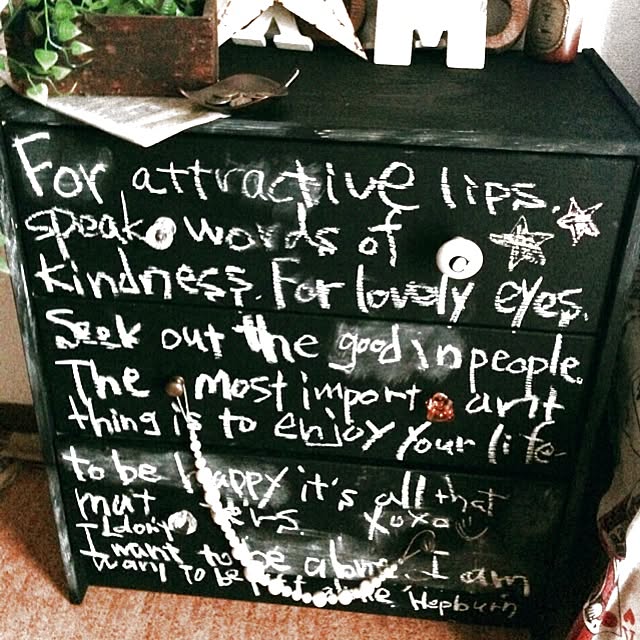 M
For attractive lips,
speak words of
C
kindness. For lovely eyes,
Seek out the good in people.
The most import ant
thing is to enjoy your life
to be happy it's all that
mat ters. xoxo
I don't
I want to be alone. I am
want to be alone. Hepburn